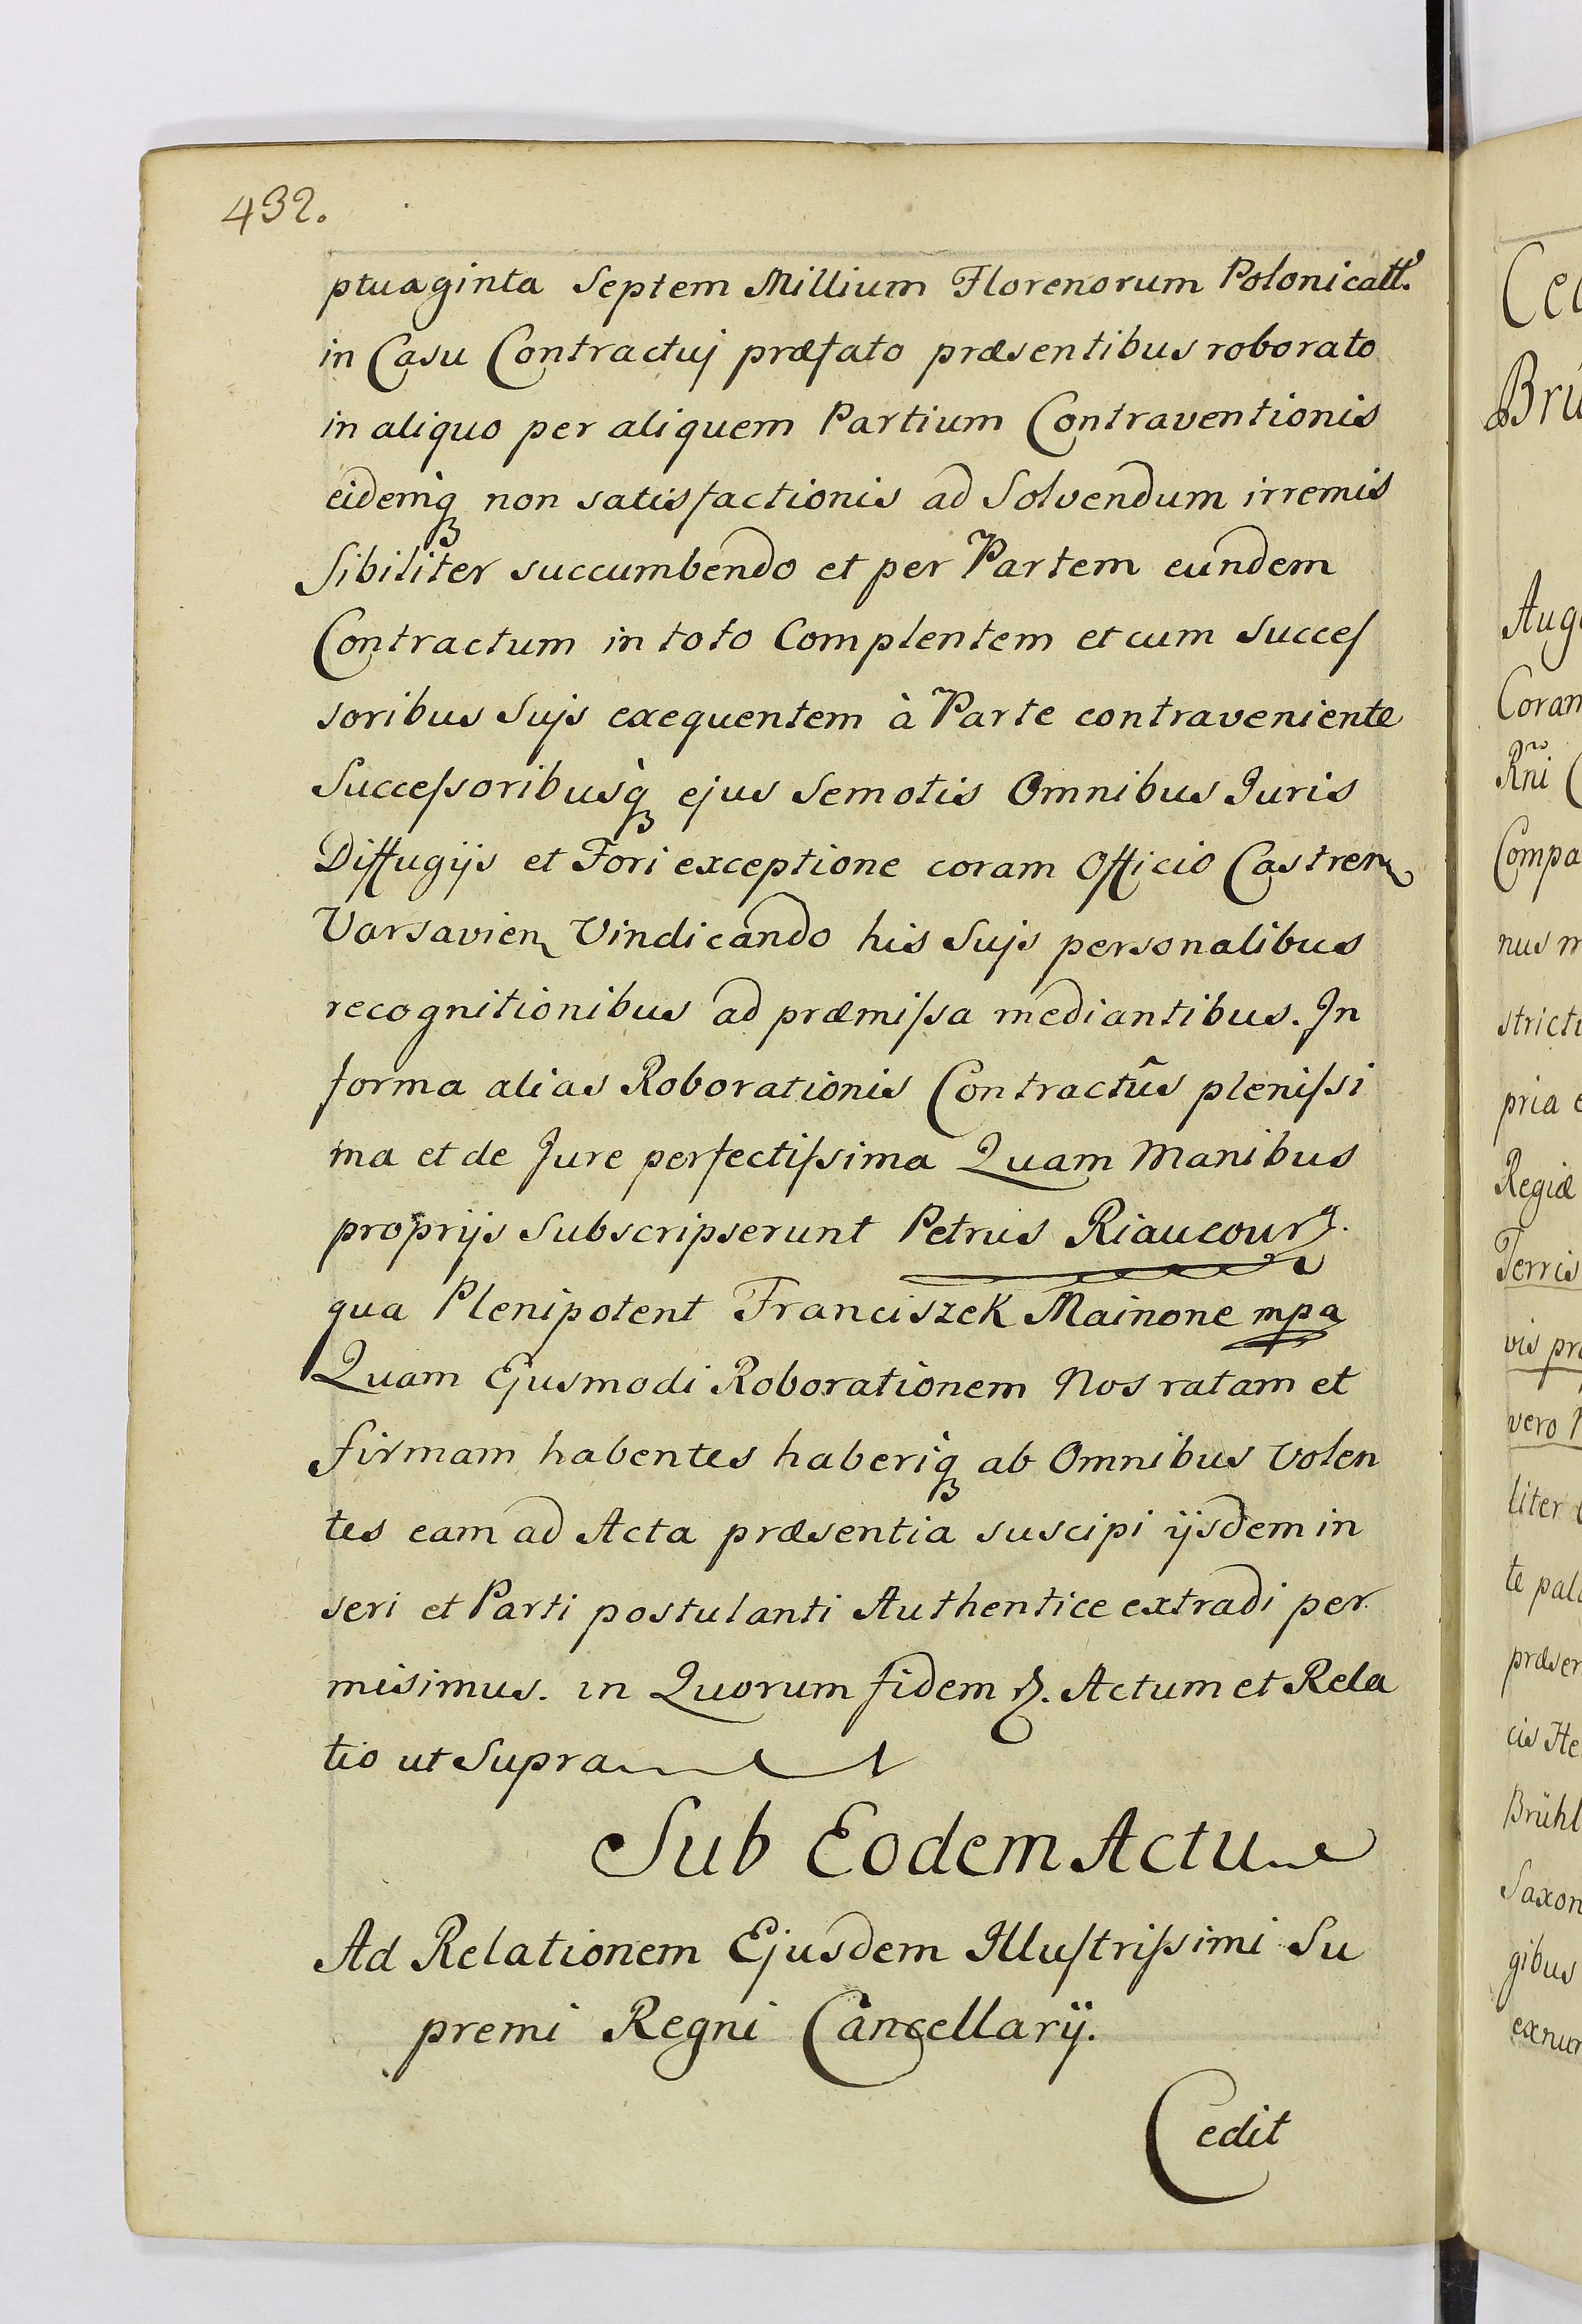 432.
ptuaginta Septem Millium Florenorum Polonicall.
in Casu Contractuj præfato præsentibus roborato
in aliquo per aliquem Partium Contraventionis
eidemq́ꝫ non satisfactionis ad Solvendum irremis
Sibiliter succumbendo et per Partem eundem
Contractum in toto Complentem et cum Succeſ
soribus Sujs exequentem à Parte contraveniente
Succeſsoribusq̀ꝫ ejus Semotis Omnibus Juris
Diffugijs et Fori exceptione coram Officio Castren
Varsavien Vindicando his Sujs personalibus
recognitionibus ad præmiſsa mediantibus. Jn
forma alias Roborationis Contractũs pleniſsi
ma et de Jure perfectiſsima Quam Manibus
proprijs Subscripserunt Petrus Riaucour
qua Plenipotent Franciszek Mainone mpa
Quam Ejusmodi Roborationem Nos ratam et
firmam habentes haberiq̀ꝫ ab Omnibus Volen
tes eam ad Acta præsentia suscipi ijsdem in
seri et Parti postulanti Authentice extradi per
misimus. in Quorum fidem &. Actum et Rela
tio ut Supra
Sub Eodem Actu
Ad Relationem Ejusdem Jlluſtriſsimi Su
premi Regni Cancellarij.
Cedit
Brü
Aug
Coram
Rñi
Compa
nus m
stricti
pria
Regiæ
Terris
vis pr
vero
liter
te pala
præsen
cis He
Brühl
Saxon
gibus